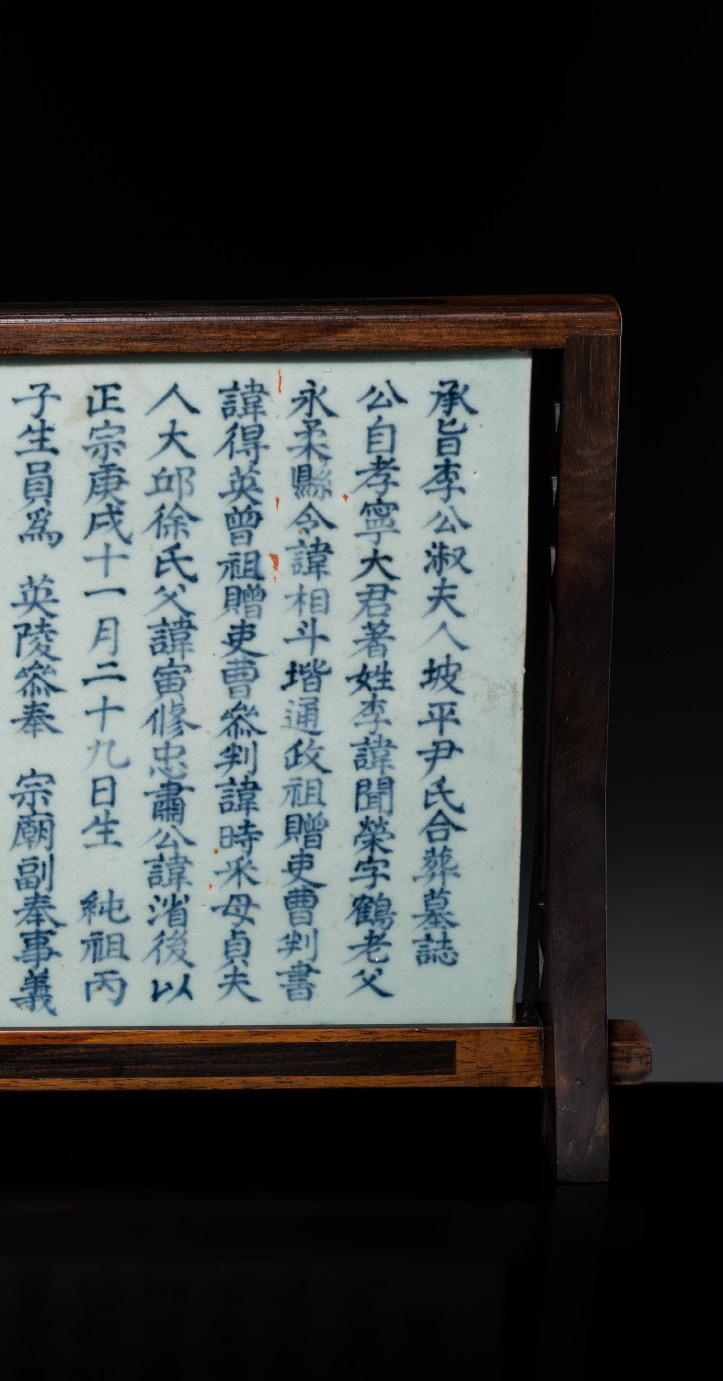 承旨李公淑夫人坡平尹氏合葬墓誌
公自孝寧大君著姓李諱聞榮字鶴老父
永柔縣令諱相斗堦通政祖贈吏曹判書
諱得英曾祖贈吏曹叅判諱時采母貞夫
人大邱徐氏父諱寅修忠肅公諱渻後以
正宗庚戌十一月二十九日生 純祖丙
子生員爲 英陵叅奉 宗廟副奉事義